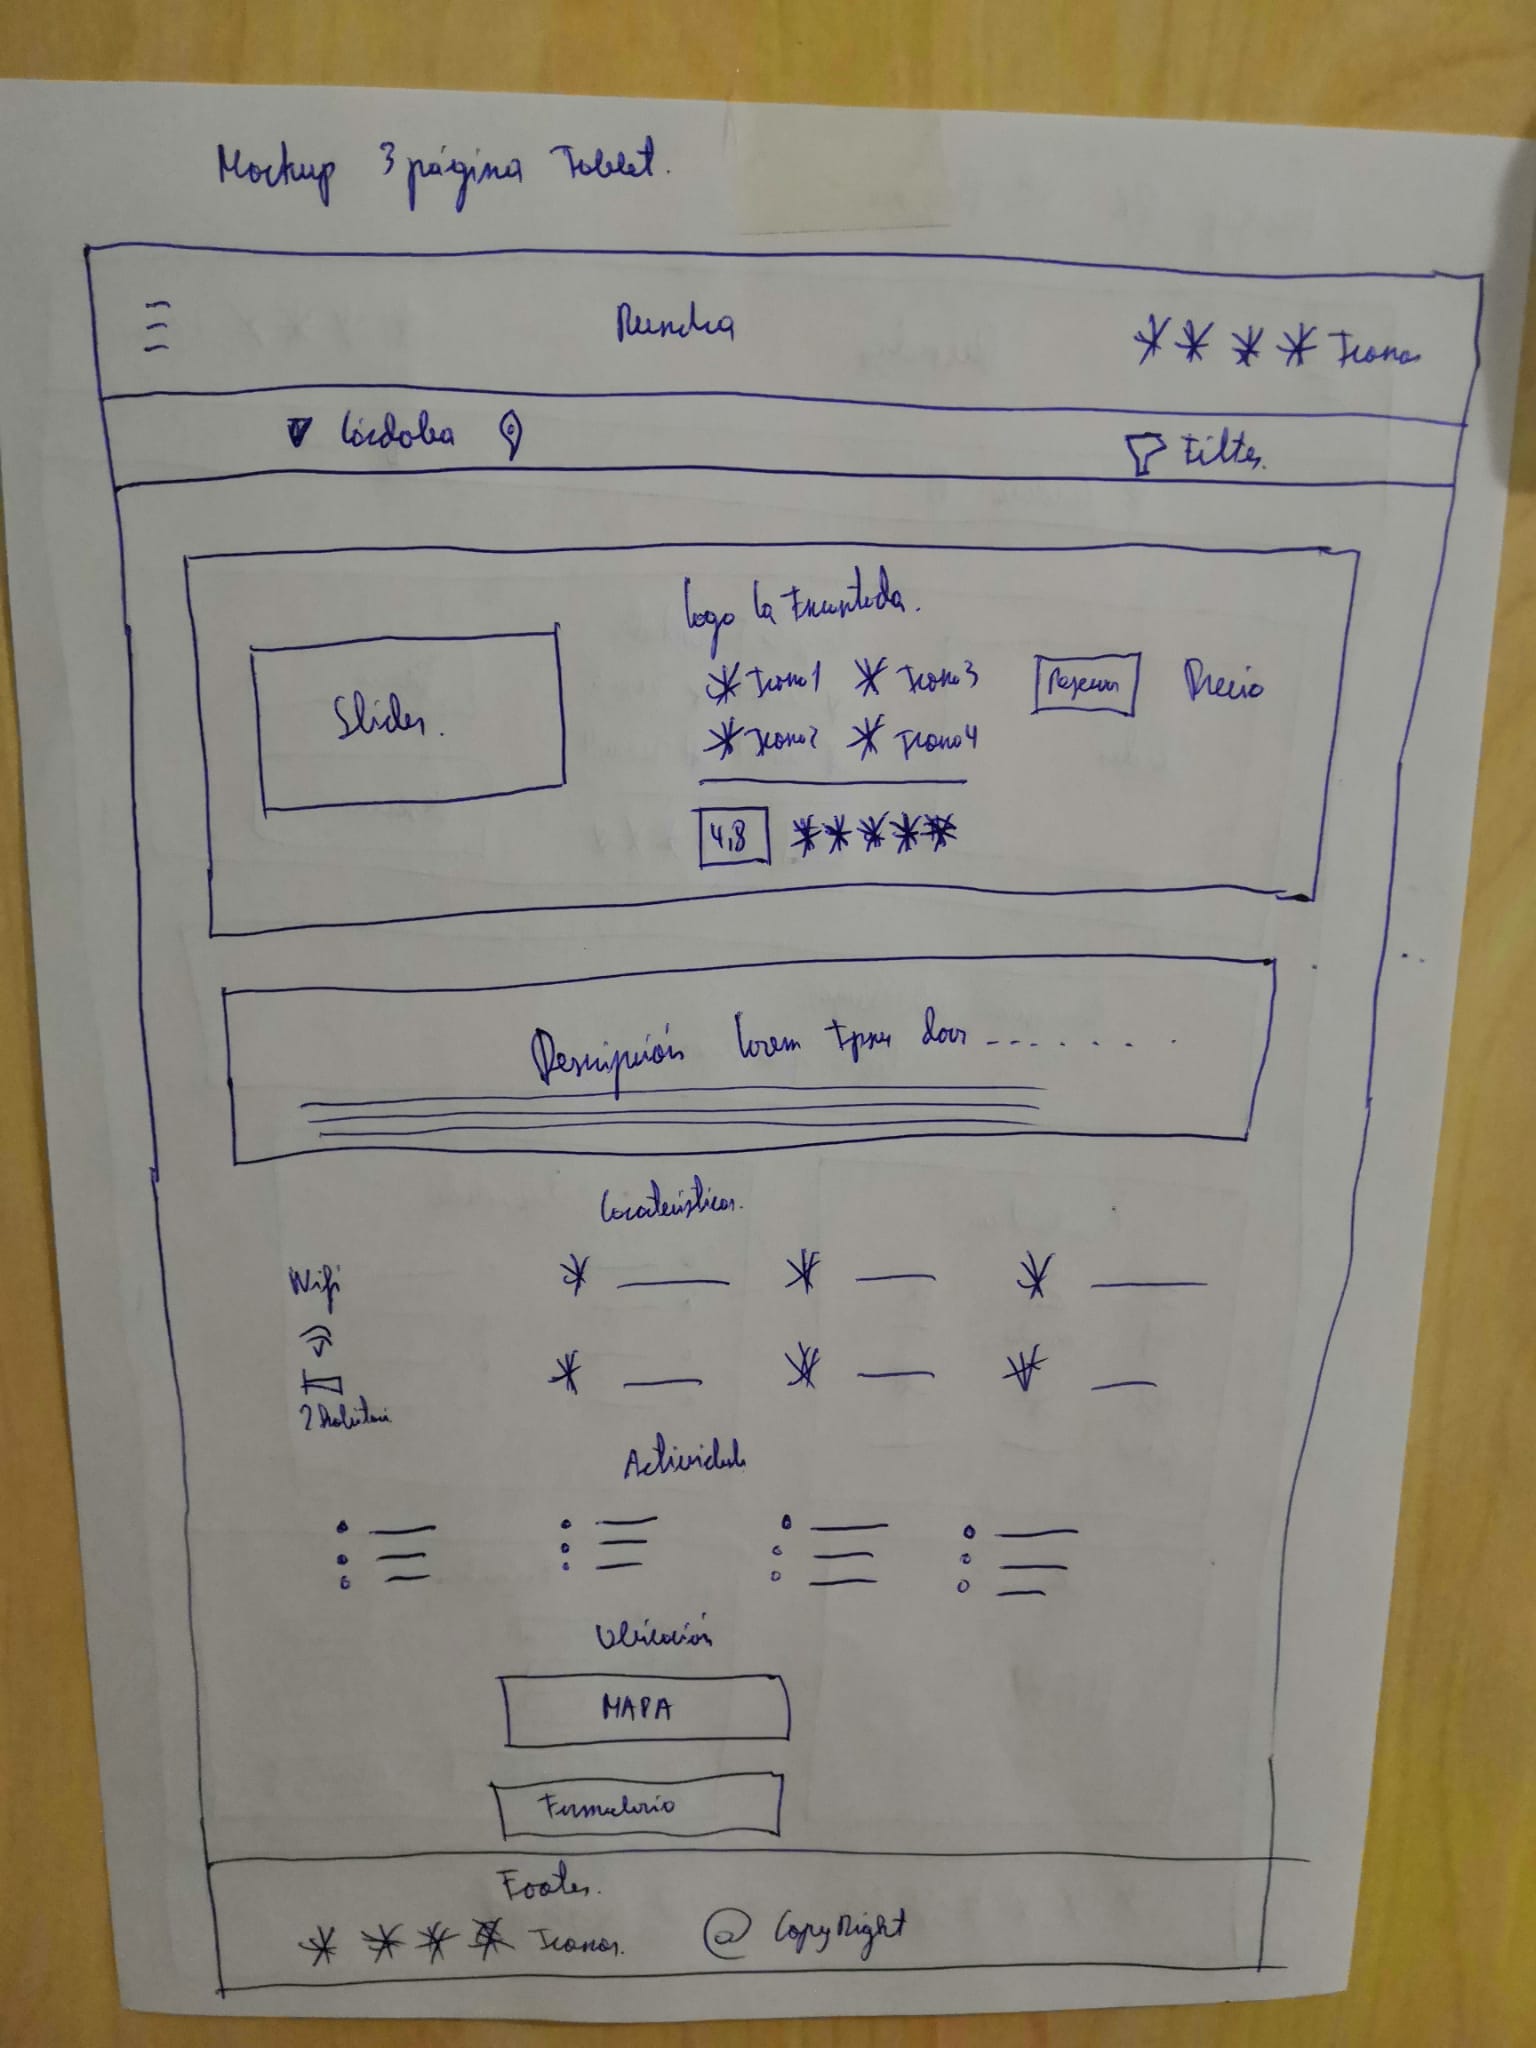 Mockup 3 página Tablet.
Iconos
Córdoba
Filter.
Logo La Encantada.
Slider.
Icono1 Icono3
Precio
Icono2 Icono4
4,8
Descripción lorem Ipsum dolor -- - - . . . .
Características.
Wifi
2 Habitaci
Actividades
Ubicación
MAPA
Formulario
Footer.
Iconos. @ CopyRight